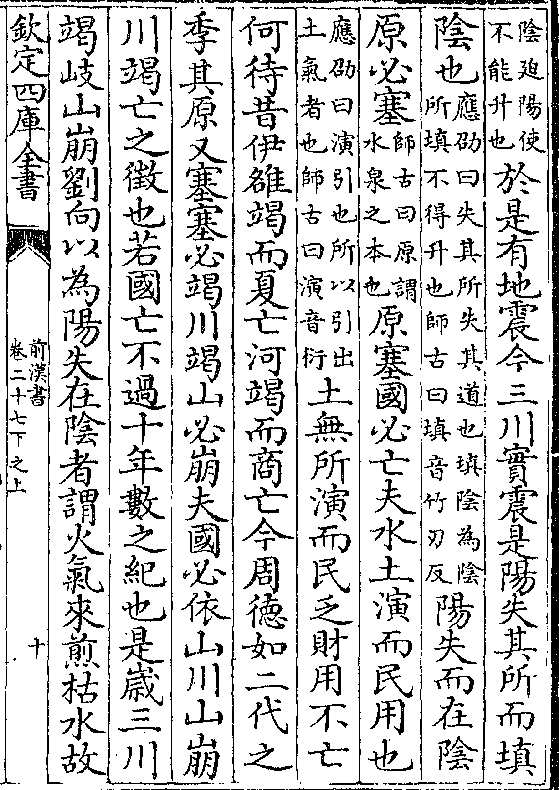 陰迫陽使
不能升也
於是有地震今三川實震是陽失其所而填
陰也
應劭曰失其所失其道也填陰為陰
所填不得升也師古曰填音竹刃反
陽失而在陰
原必塞
師古曰原謂
水泉之本也
原塞國必亡夫水土演而民用也
應劭曰演引也所以引出
土氣者也師古曰演音衍
土無所演而民乏財用不亡
何待昔伊雒竭而夏亡河竭而商亡今周德如二代之
季其原又塞塞必竭川竭山必崩夫國必依山川山崩
川竭亡之徵也若國亡不過十年數之紀也是歲三川
竭岐山崩劉向以為陽失在陰者謂火氣來煎枯水故
欽定四庫全書
前漢書
卷二十七下之上
十